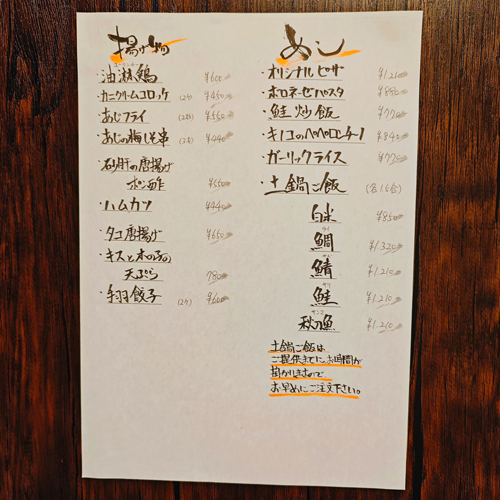 揚げ物
油淋鶏 ¥600
・カニクリームコロッケ (2ケ) ¥450
・あじフライ (2枚) ¥550
・あじの梅しそ串 (3本) ¥440
・砂肝の唐揚げ
ポン酢 ¥550
・ハムカツ ¥440
・タコ唐揚げ ¥650
・キスと木の子の
天ぷら 780
・手羽餃子 (2ケ)
めし
・オリジナルピザ
・ボロネーゼパスタ
・鮭炒飯
・キノコのペペロンチーノ
・ガーリックライス
・土鍋ご飯
白米 ¥850
鯛 ¥1,320
鯖 ¥1,210
鮭 ¥1,210
サンマ
秋刀魚 ¥1,210
土鍋ご飯は
ご提供までにお時間が
掛かりますので
お早めにご注文下さい。